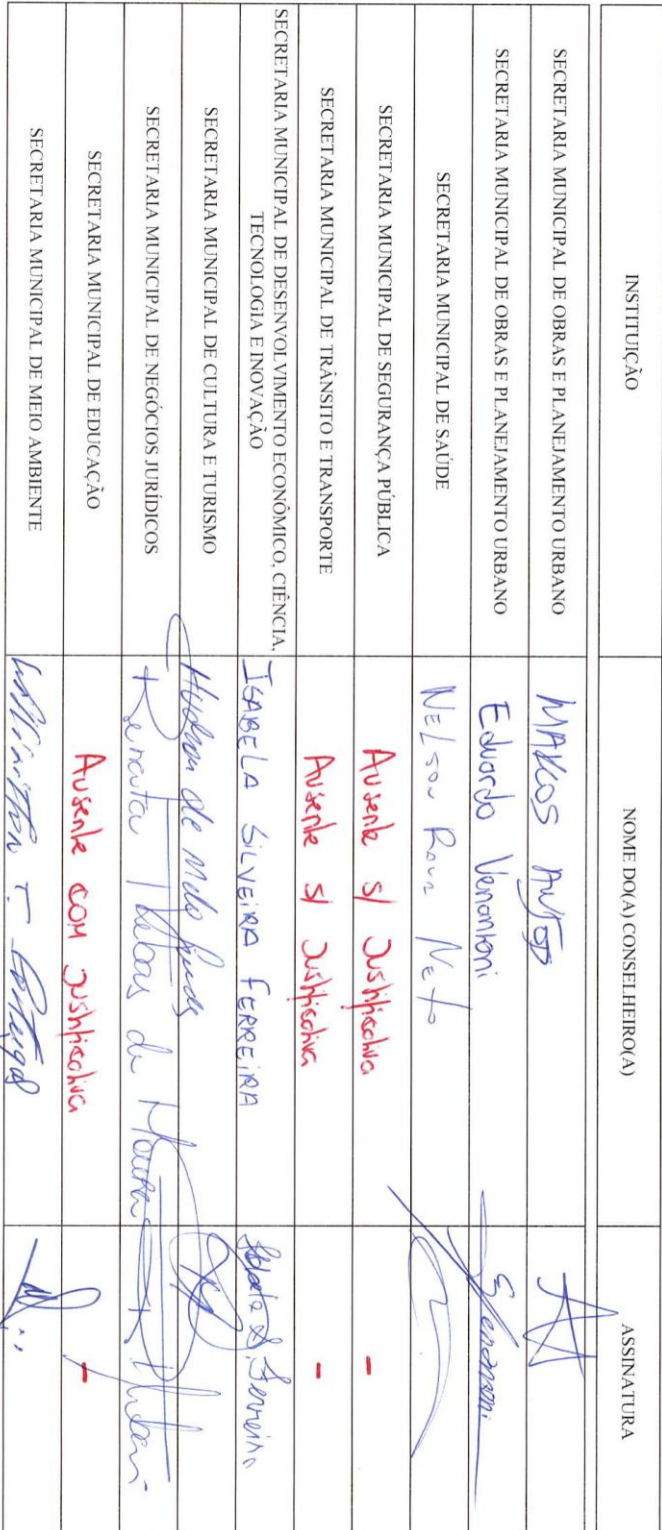 INSTITUIÇÃO NOME DO(A) CONSELHEIRO(A) ASSINATURA
SECRETARIA MUNICIPAL DE OBRAS E PLANEJAMENTO URBANO MARCOS
SECRETARIA MUNICIPAL DE OBRAS E PLANEJAMENTO URBANO Eduardo Venantoni
SECRETARIA MUNICIPAL DE SAÚDE NELSON Neto
SECRETARIA MUNICIPAL DE SEGURANÇA PÚBLICA Ausente s/ Justificativa -
SECRETARIA MUNICIPAL DE TRÂNSITO E TRANSPORTE Ausente s/ Justificativa -
SECRETARIA MUNICIPAL DE DESENVOLVIMENTO ECONÔMICO, CIÊNCIA,
TECNOLOGIA E INOVAÇÃO ISABELA SILVEIRA FERREIRA Isabela S. Ferreira
SECRETARIA MUNICIPAL DE CULTURA E TURISMO Hudson de Melo
SECRETARIA MUNICIPAL DE NEGÓCIOS JURÍDICOS Renata de Moura
SECRETARIA MUNICIPAL DE EDUCAÇÃO Ausente COM Justificativa -
SECRETARIA MUNICIPAL DE MEIO AMBIENTE T. Portugal